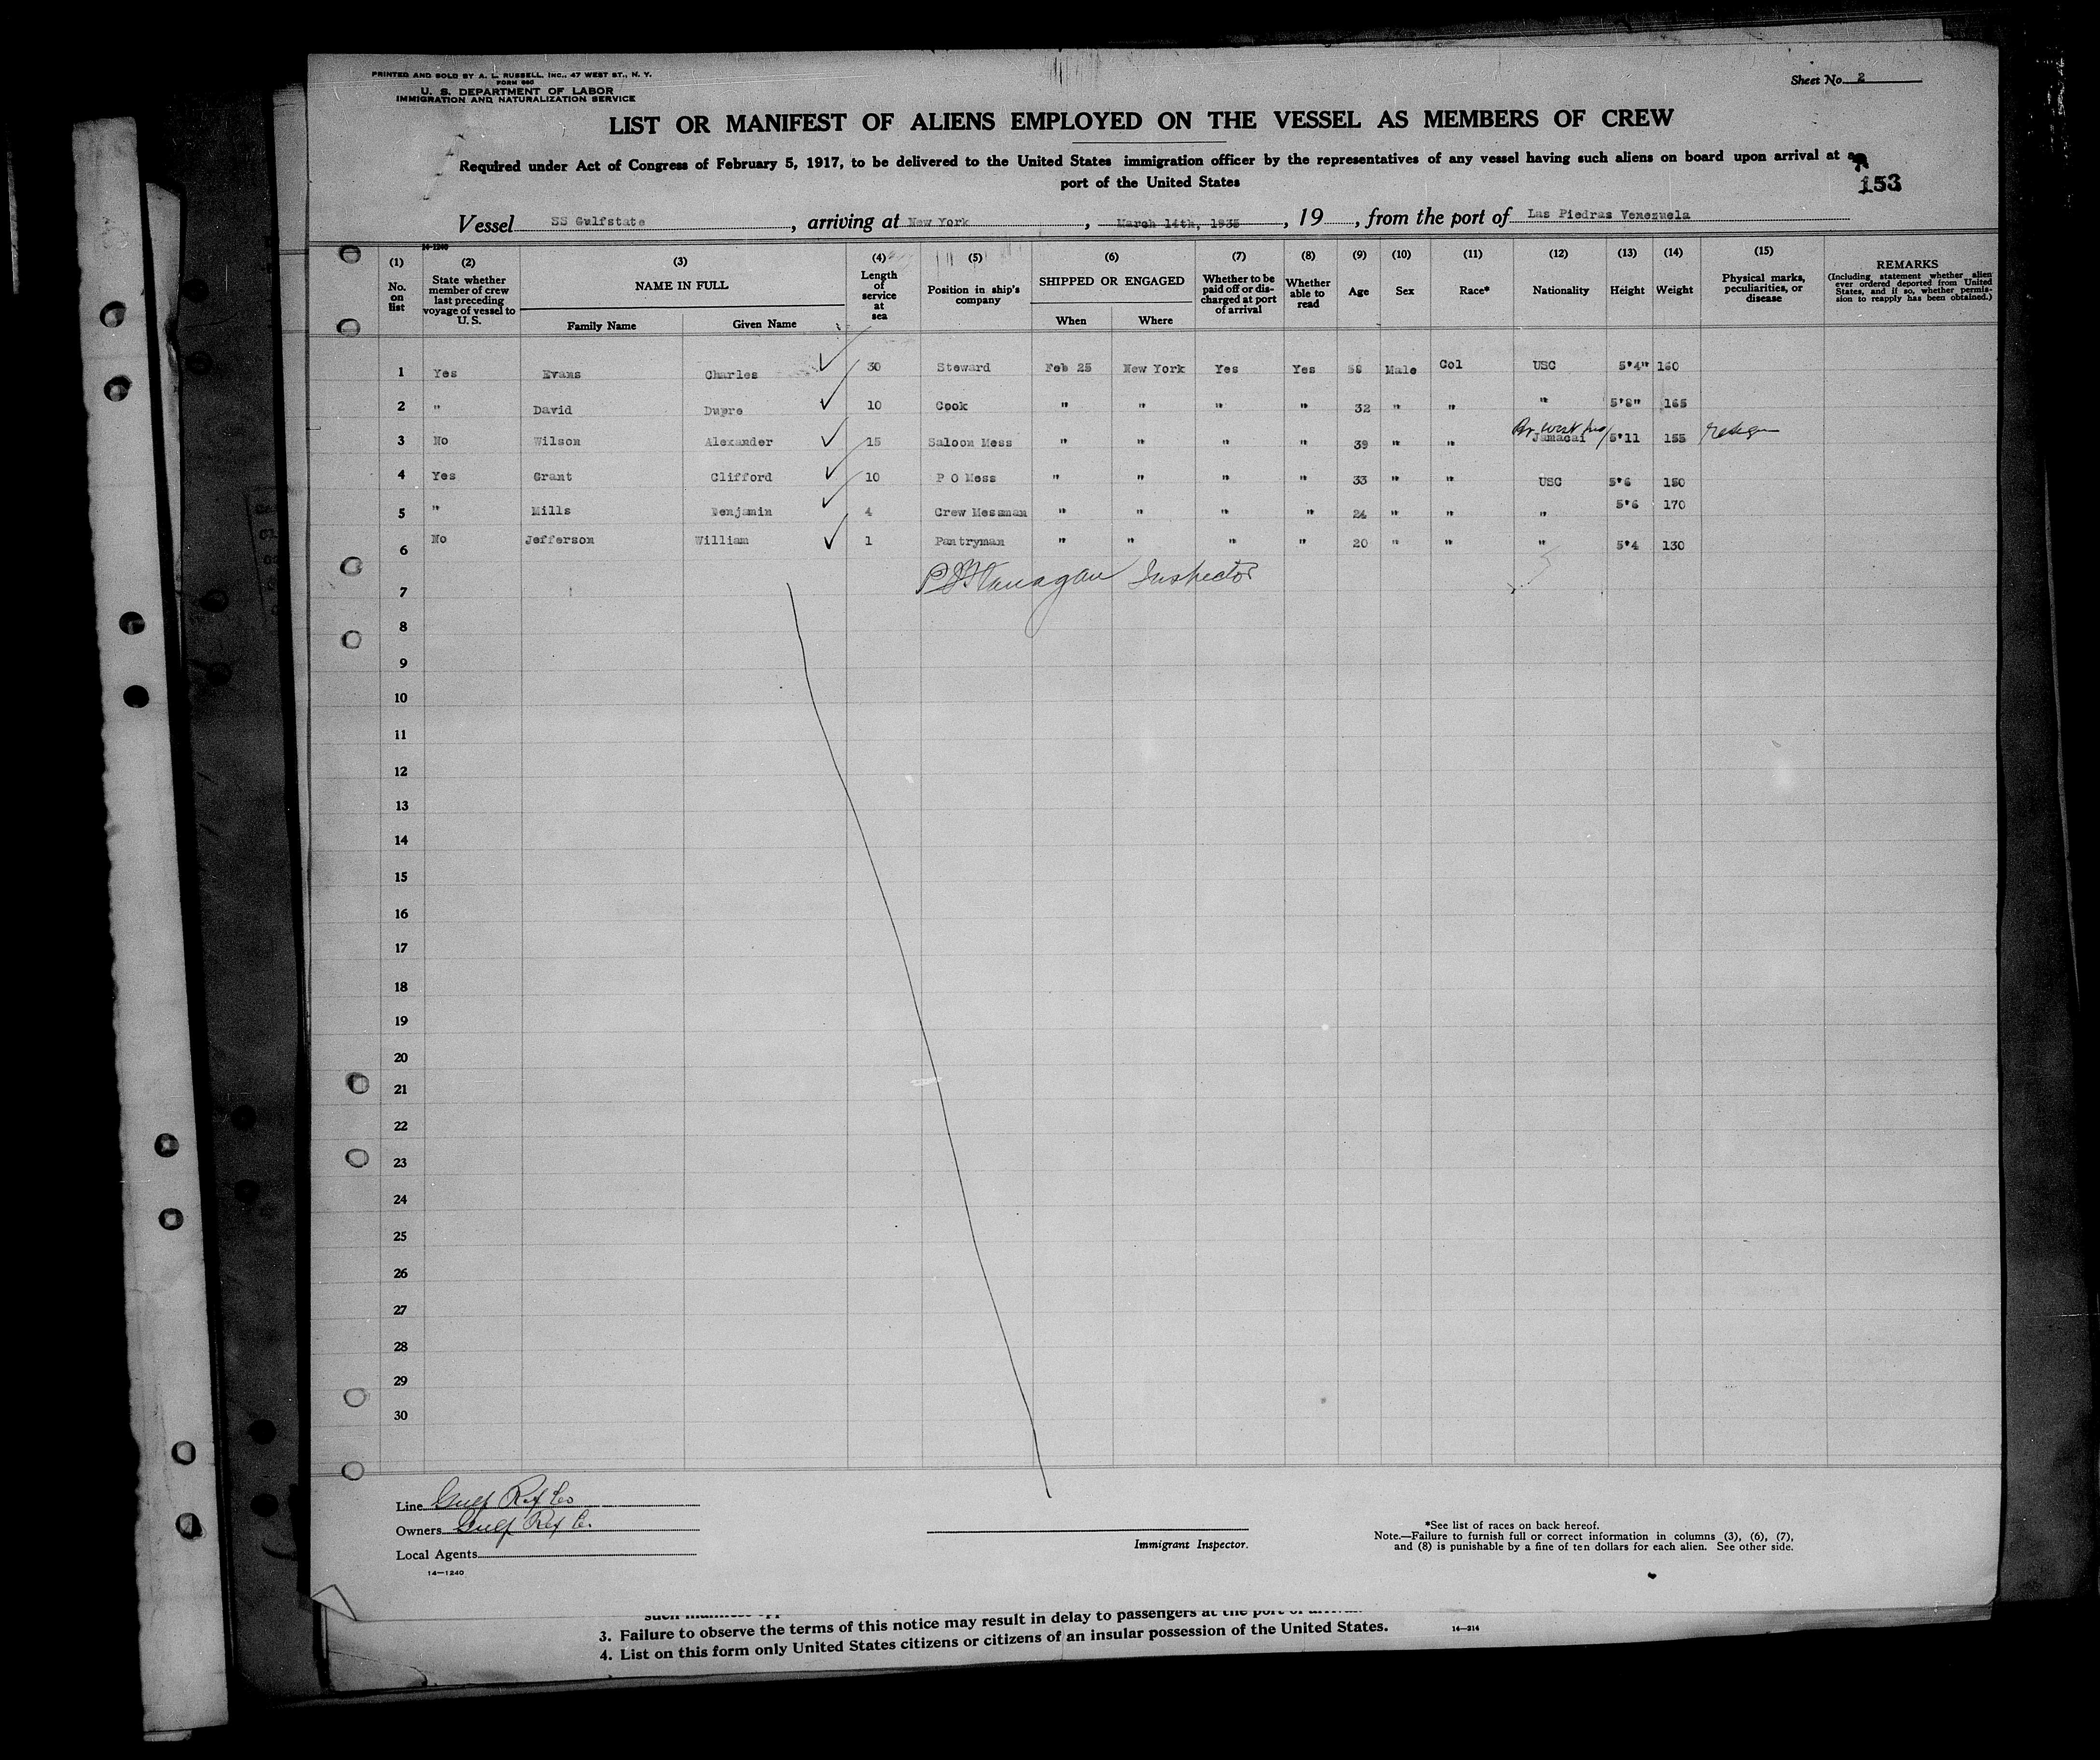 PRINTED AND SOLD BY A. L. RUSSELL, INC., 47 WEST ST., N. Y.
FORM 680
U. S. DEPARTMENT OF LABOR
IMMIGRATION AND NATURALIZATION SERVICE
Sheet No. 2
LIST OR MANIFEST OF ALIENS EMPLOYED ON THE VESSEL AS MEMBERS OF CREW
Required under Act of Congress of February 5, 1917, to be delivered to the United States immigration officer by the representatives of any vessel having such aliens on board upon arrival at a
port of the United States
153
Vessel SS Gulfstate, arriving at New York, March 14th, 1935, 19, from the port of Las Piedras Venezuela
14-1240
(1) No. on list
(2) State whether member of crew last preceding voyage of vessel to U. S.
(3) NAME IN FULL Family Name Given Name
(4) Length of service at sea
(5) Position in ship's company
(6) SHIPPED OR ENGAGED When Where
(7) Whether to be paid off or discharged at port of arrival
(8) Whether able to read
(9) Age
(10) Sex
(11) Race*
(12) Nationality
(13) Height
(14) Weight
(15) Physical marks, peculiarities, or disease
REMARKS (Including statement whether alien ever ordered deported from United States, and if so, whether permission to reapply has been obtained.)
1 Yes Evans Charles 30 Steward Feb 25 New York Yes Yes 58 Male Col USC 5'4" 160
2 " David Dupre 10 Cook " " " " 32 " " " 5'8" 165
Br. West
3 No Wilson Alexander 15 Saloon Mess " " " " 39 " " Jamacai 5'11 155
4 Yes Grant Clifford 10 P O Mess " " " " 33 " " USC 5'6 150
5 " Mills Benjamin 4 Crew Messman " " " " 24 " " " 5'6 170
6 No Jefferson William 1 Pantryman " " " " 20 " " " 5'4 130
P J Flanagan Inspector
7
8
9
10
11
12
13
14
15
16
17
18
19
20
21
22
23
24
25
26
27
28
29
30
Line Gulf Ref Co
Owners Gulf Ref Co.
Local Agents
14—1240
Immigrant Inspector.
*See list of races on back hereof.
Note.—Failure to furnish full or correct information in columns (3), (6), (7),
and (8) is punishable by a fine of ten dollars for each alien. See other side.
3. Failure to observe the terms of this notice may result in delay to passengers at the port of arrival.
4. List on this form only United States citizens or citizens of an insular possession of the United States.
14—214